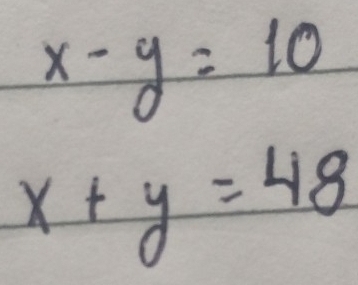 x - y = 10
x + y = 48